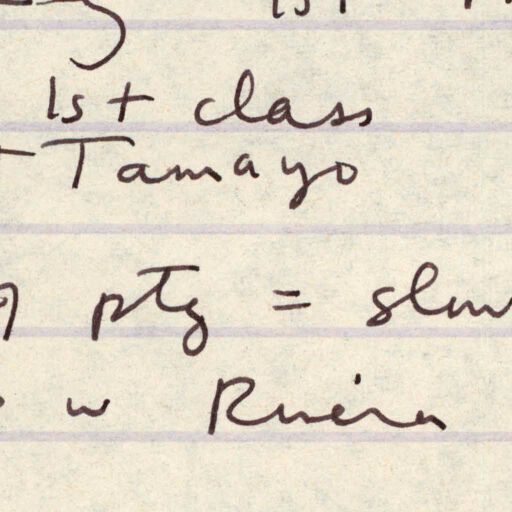 1st
1st class
Tamayo
ptg = slow
w Rivera